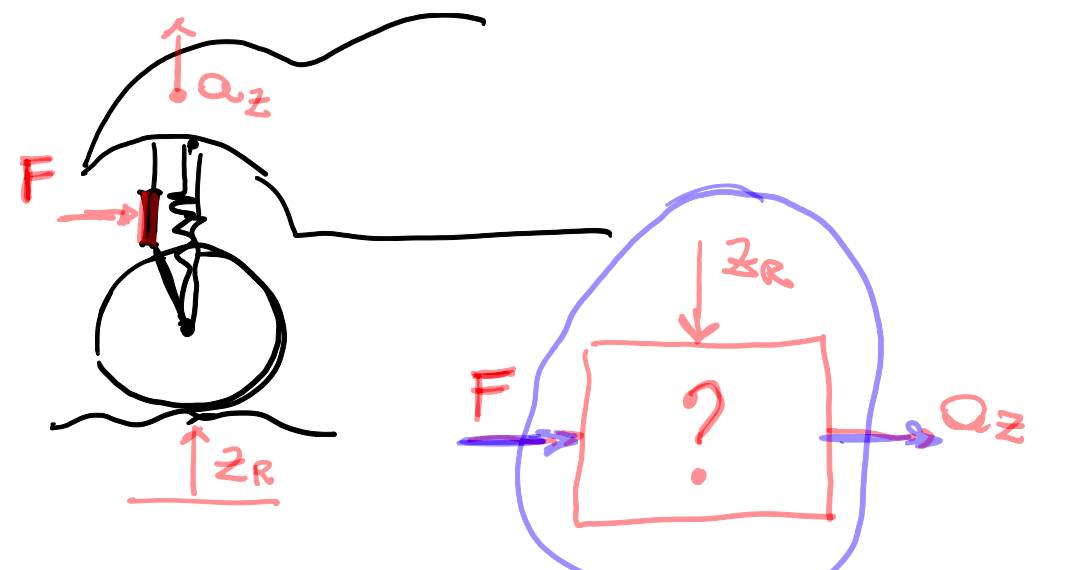 a_z
F
z_R
z_R
F
?
a_z